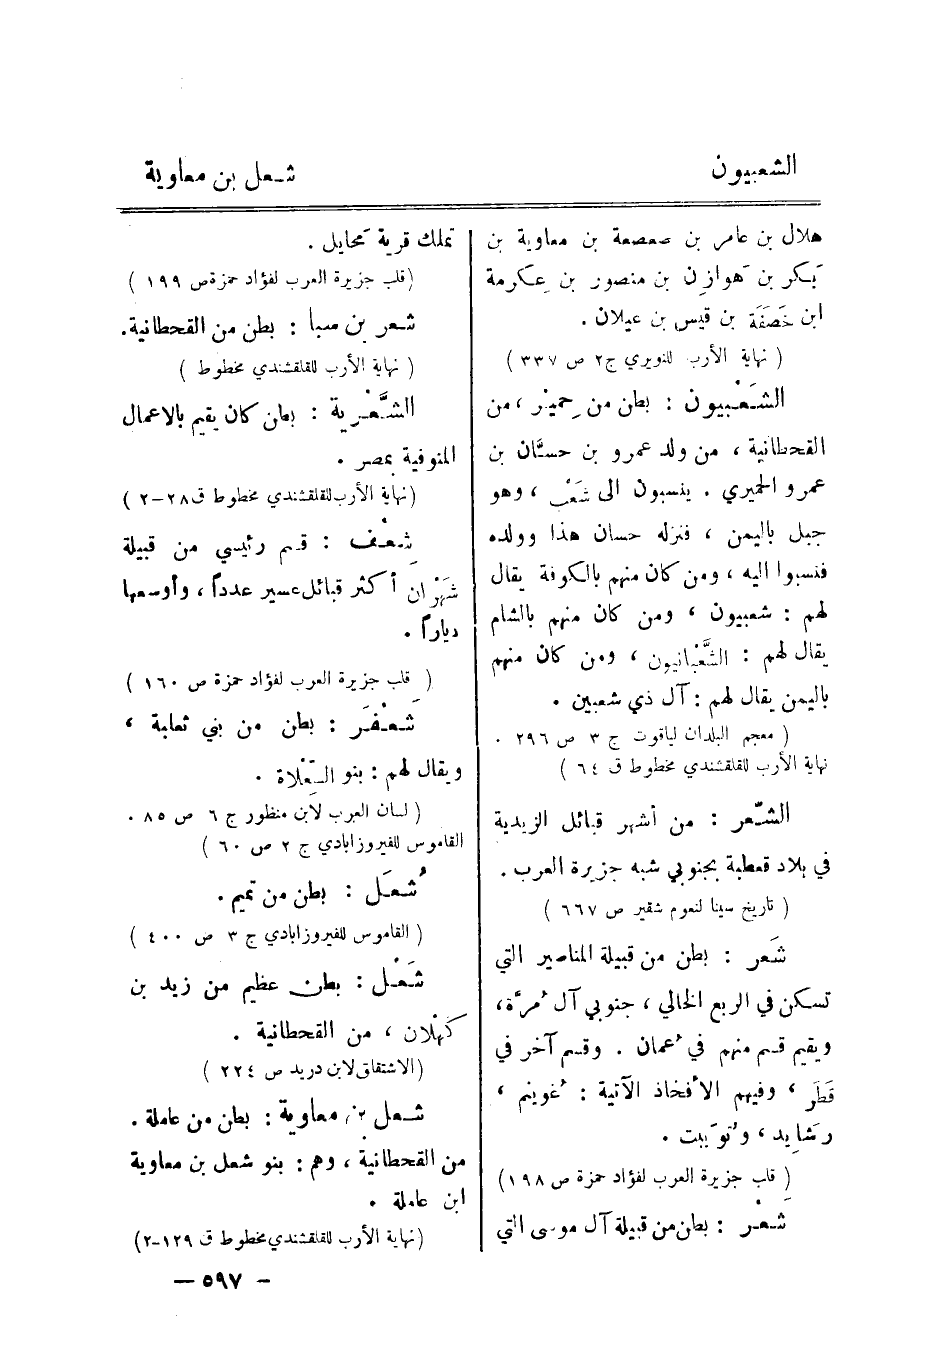 الشعبيون
شعل بن معاوية
هلال بن عامر بن صعصعة بن معاوية بن
بَكر بن هَوازِن بن منصور بن عِكرمة
ابن خَصَفَة بن قيس بن عيلان .
( نهاية الأرب للنويري ج٢ ص ٣٣٧ )
الشَعْبيون : بطن من حِمْيَر ، من
القحطانية ، من ولد عمرو بن حسَّان بن
عمرو الحميري . ينسبون الى شَعْب ، وهو
جبل باليمن ، فنزله حسان هذا وولده
فنسبوا اليه ، ومن كان منهم بالكوفة يقال
لهم : شعبيون ، ومن كان منهم بالشام
يقال لهم : الشَّعْبانيون ، ومن كان منهم
باليمن يقال لهم : آل ذي شعبين .
( معجم البلدان لياقوت ج ٣ ص ٢٩٦ .
نهاية الأرب للقلقشندي مخطوط ق ٦٤ )
الشّعر : من أشهر قبائل الزيدية
في بلاد قعطبة بجنوبي شبه جزيرة العرب .
( تاريخ سينا لنعوم شقير ص ٦٦٧ )
شَعر : بطن من قبيلة المناصير التي
تسكن في الربع الخالي ، جنوبي آل مُرَّة ،
ويقيم قسم منهم في عُمان . وقسم آخر في
قَطَر ، وفيهم الأفخاذ الآتية : غُوينم ،
رشَايد ، وتُوَيبت .
( قلب جزيرة العرب لفؤاد حمزة ص ١٩٨ )
شعْر : بطن من قبيلة آل موسى التي
تملك قرية مَحايل .
( قلب جزيرة العرب لفؤاد حمزة ص ١٩٩ )
شعر بن سبا : بطن من القحطانية .
( نهاية الأرب للقلقشندي مخطوط )
الشَّعْرية : بطن كان يقيم بالاعمال
المنوفية بمصر .
( نهاية الأرب للقلقشندي مخطوط ق ٢٨-٢ )
شِعْف : قسم رئيسي من قبيلة
شَهْران أكثر قبائل عسير عدداً ، وأوسعها
دياراً .
( قلب جزيرة العرب لفؤاد حمزة ص ١٦٠ )
شِعْفَر : بطن من بني ثعلبة ،
ويقال لهم : بنو السِّعْلاة .
( لسان العرب لابن منظور ج ٦ ص ٨٥ .
القاموس للفيروزابادي ج ٢ ص ٦٠ )
شُعَل : بطن من تميم .
( القاموس للفيروزابادي ج ٣ ص ٤٠٠ )
شَعْل : بطن عظيم من زيد بن
كَهْلان ، من القحطانية .
( الاشتقاق لابن دريد ص ٢٢٤ )
شعل بن معاوية : بطن من عاملة .
من القحطانية ، وهم : بنو شعل بن معاوية
ابن عاملة .
( نهاية الأرب للقلقشندي مخطوط ق ١٢٩-٢ )
— ٥٩٧ —